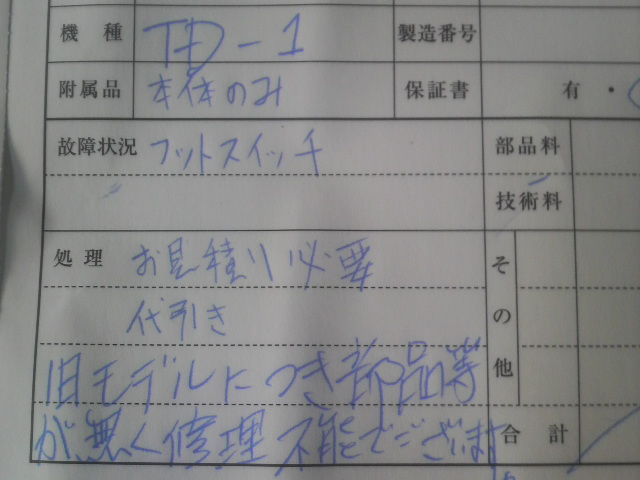 機種 TD-1 製造番号
附属品 本体のみ 保証書 有・
故障状況 フットスイッチ 部品料
技術料
処理 お見積り必要 その他
代引き
旧モデルにつき部品等
が無く修理不能でございます。 合計